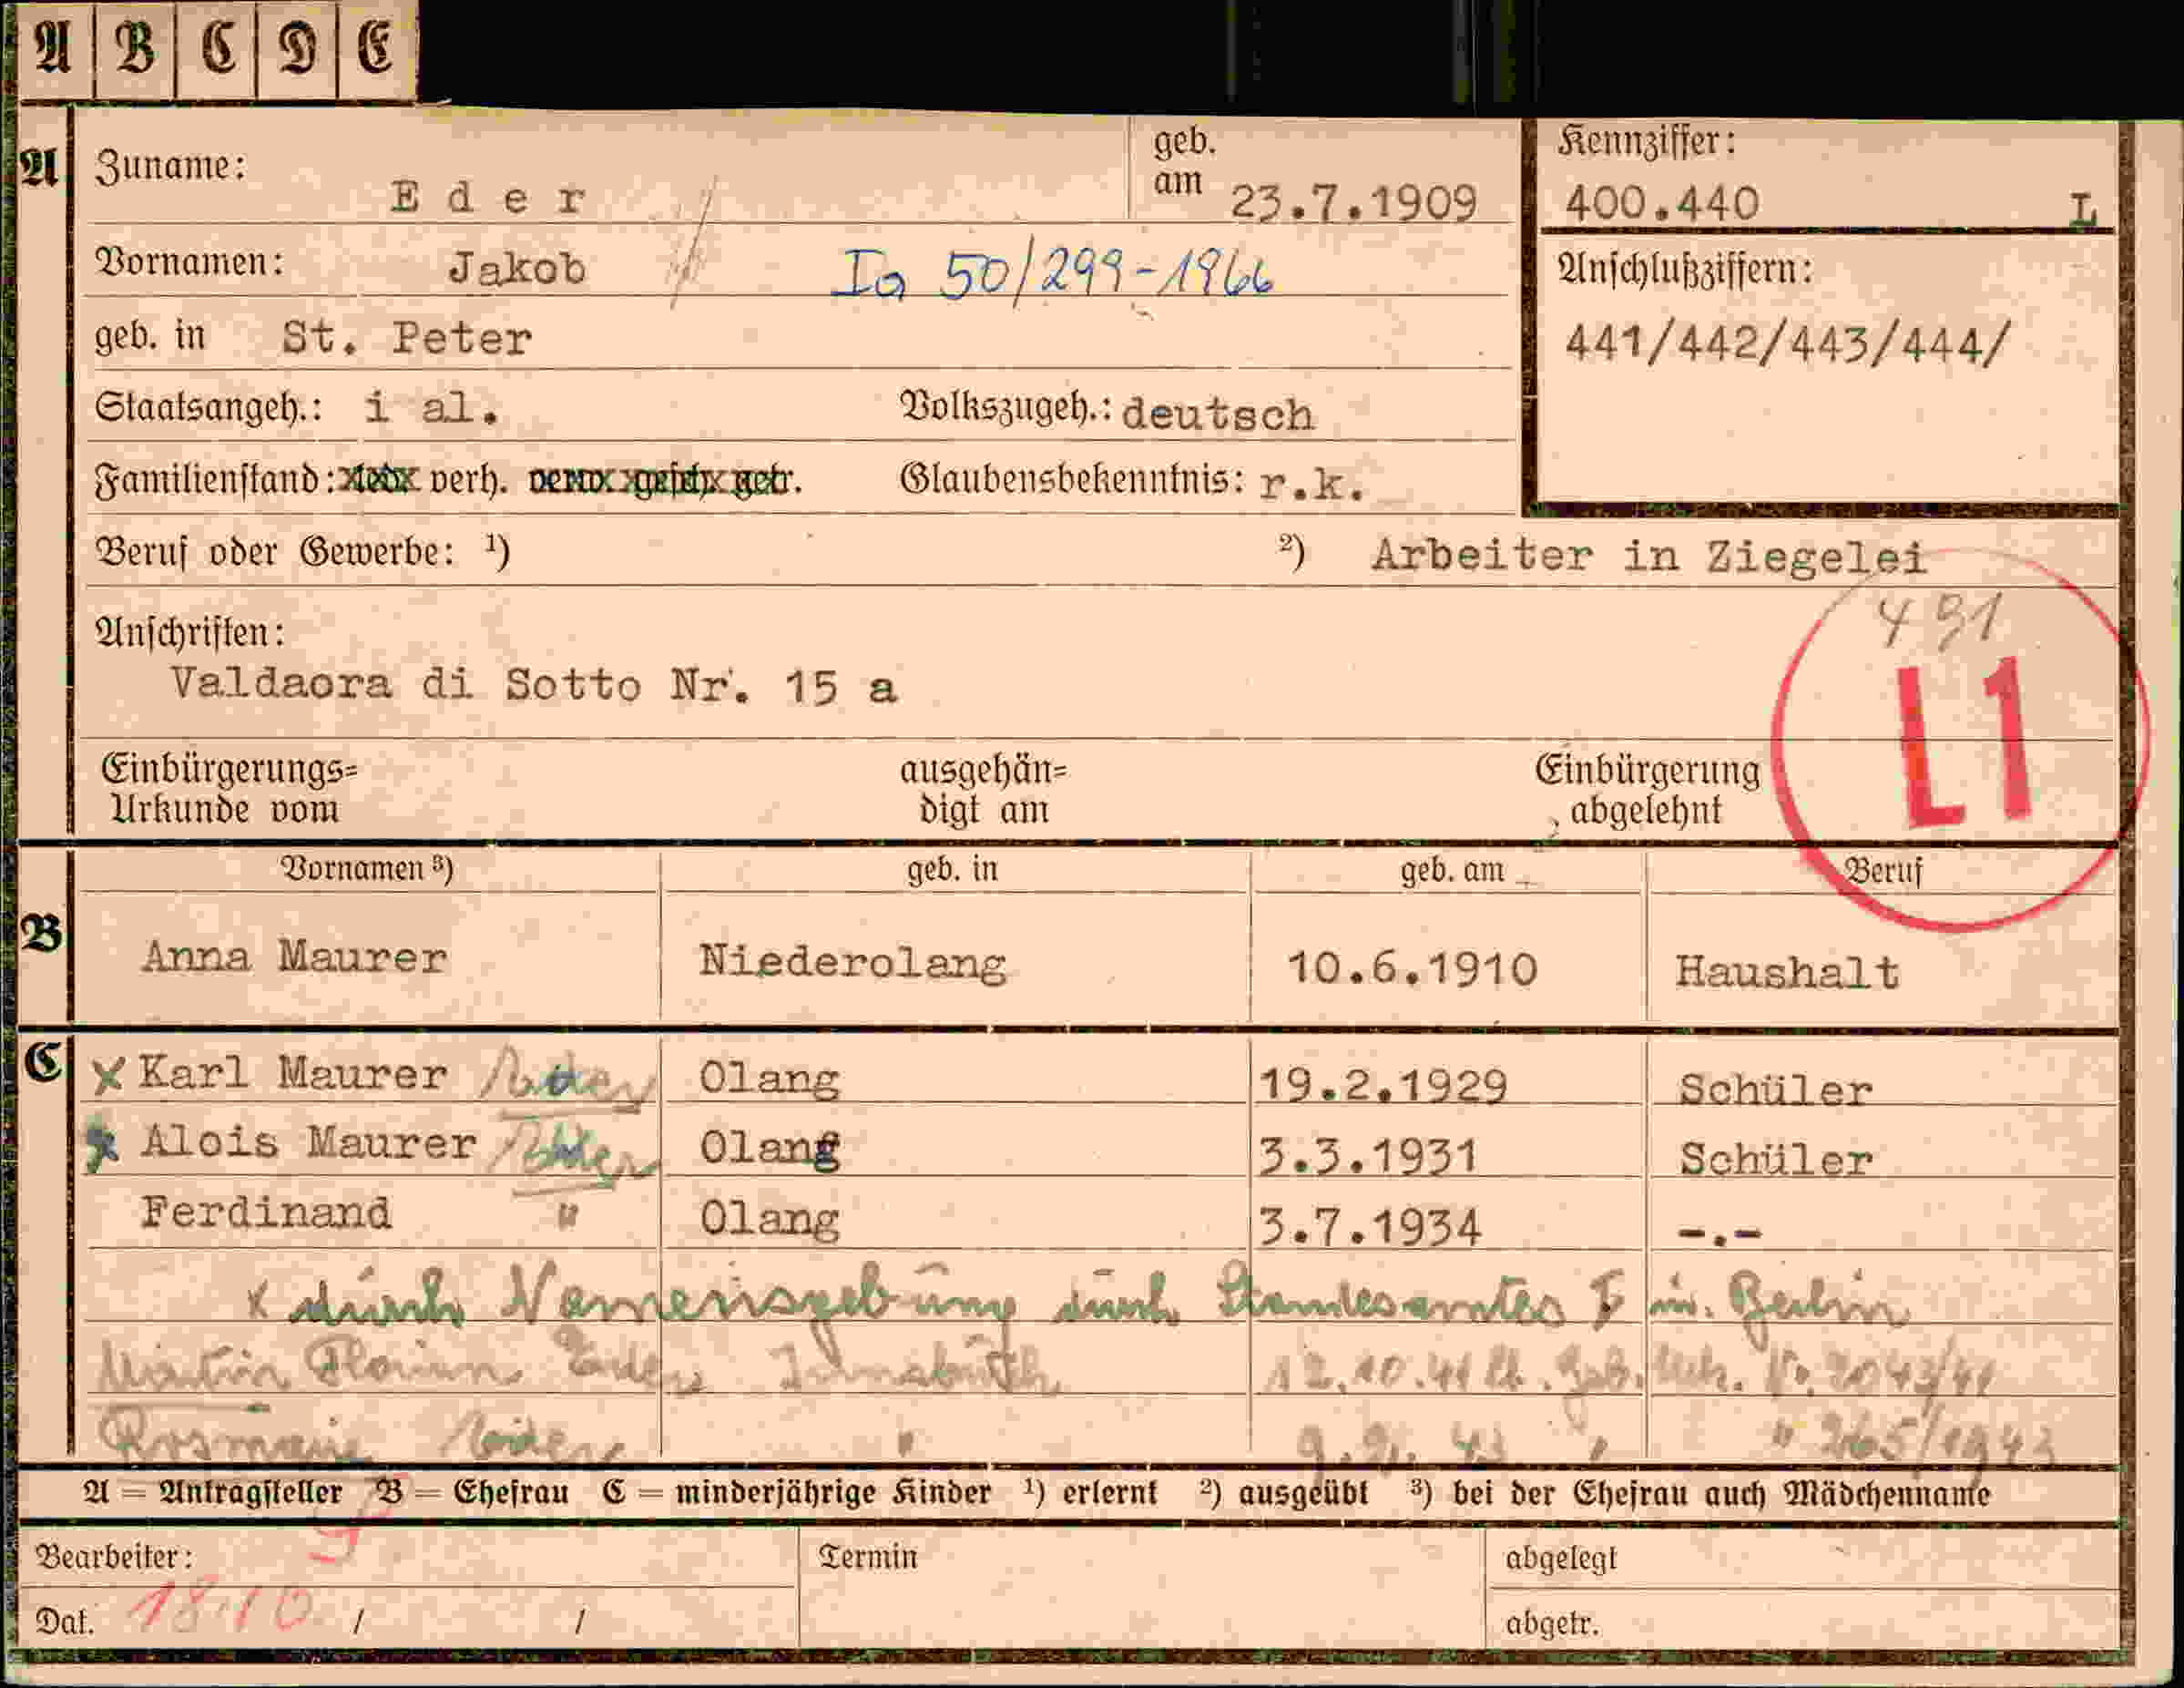 A B C D E
A Zuname: Eder geb. am 23.7.1909 Kennziffer: 400.440 L
Vornamen: Jakob Ia 50/299-1966 Anschlußziffern:
geb. in St. Peter 441/442/443/444/
Staatsangeh.: i al. Volkszugeh.: deutsch
Familienstand: verh. getr. Glaubensbekenntnis: r.k.
Beruf oder Gewerbe: ¹) ²) Arbeiter in Ziegelei
491
Anschriften:
Valdaora di Sotto Nr. 15 a
L1
Einbürgerungs= ausgehän= Einbürgerung
Urkunde vom digt am abgelehnt
Vornamen ³) geb. in geb. am Beruf
B Anna Maurer Niederolang 10.6.1910 Haushalt
C x Karl Maurer Eder Olang 19.2.1929 Schüler
x Alois Maurer Eder Olang 3.3.1931 Schüler
Ferdinand " Olang 3.7.1934 -.-
x durch Namensgebung durch Standesamtes I in Berlin
Martin Florian Eder 12.10.41 Geb. Urk. Nr. 2043/41
Rosmarie Eder " 9.2. 43 " " 265/1943
A = Antragsteller B = Ehefrau C = minderjährige Kinder ¹) erlernt ²) ausgeübt ³) bei der Ehefrau auch Mädchenname
Bearbeiter: Termin abgelegt
Dat. 18.10 / / abgetr.